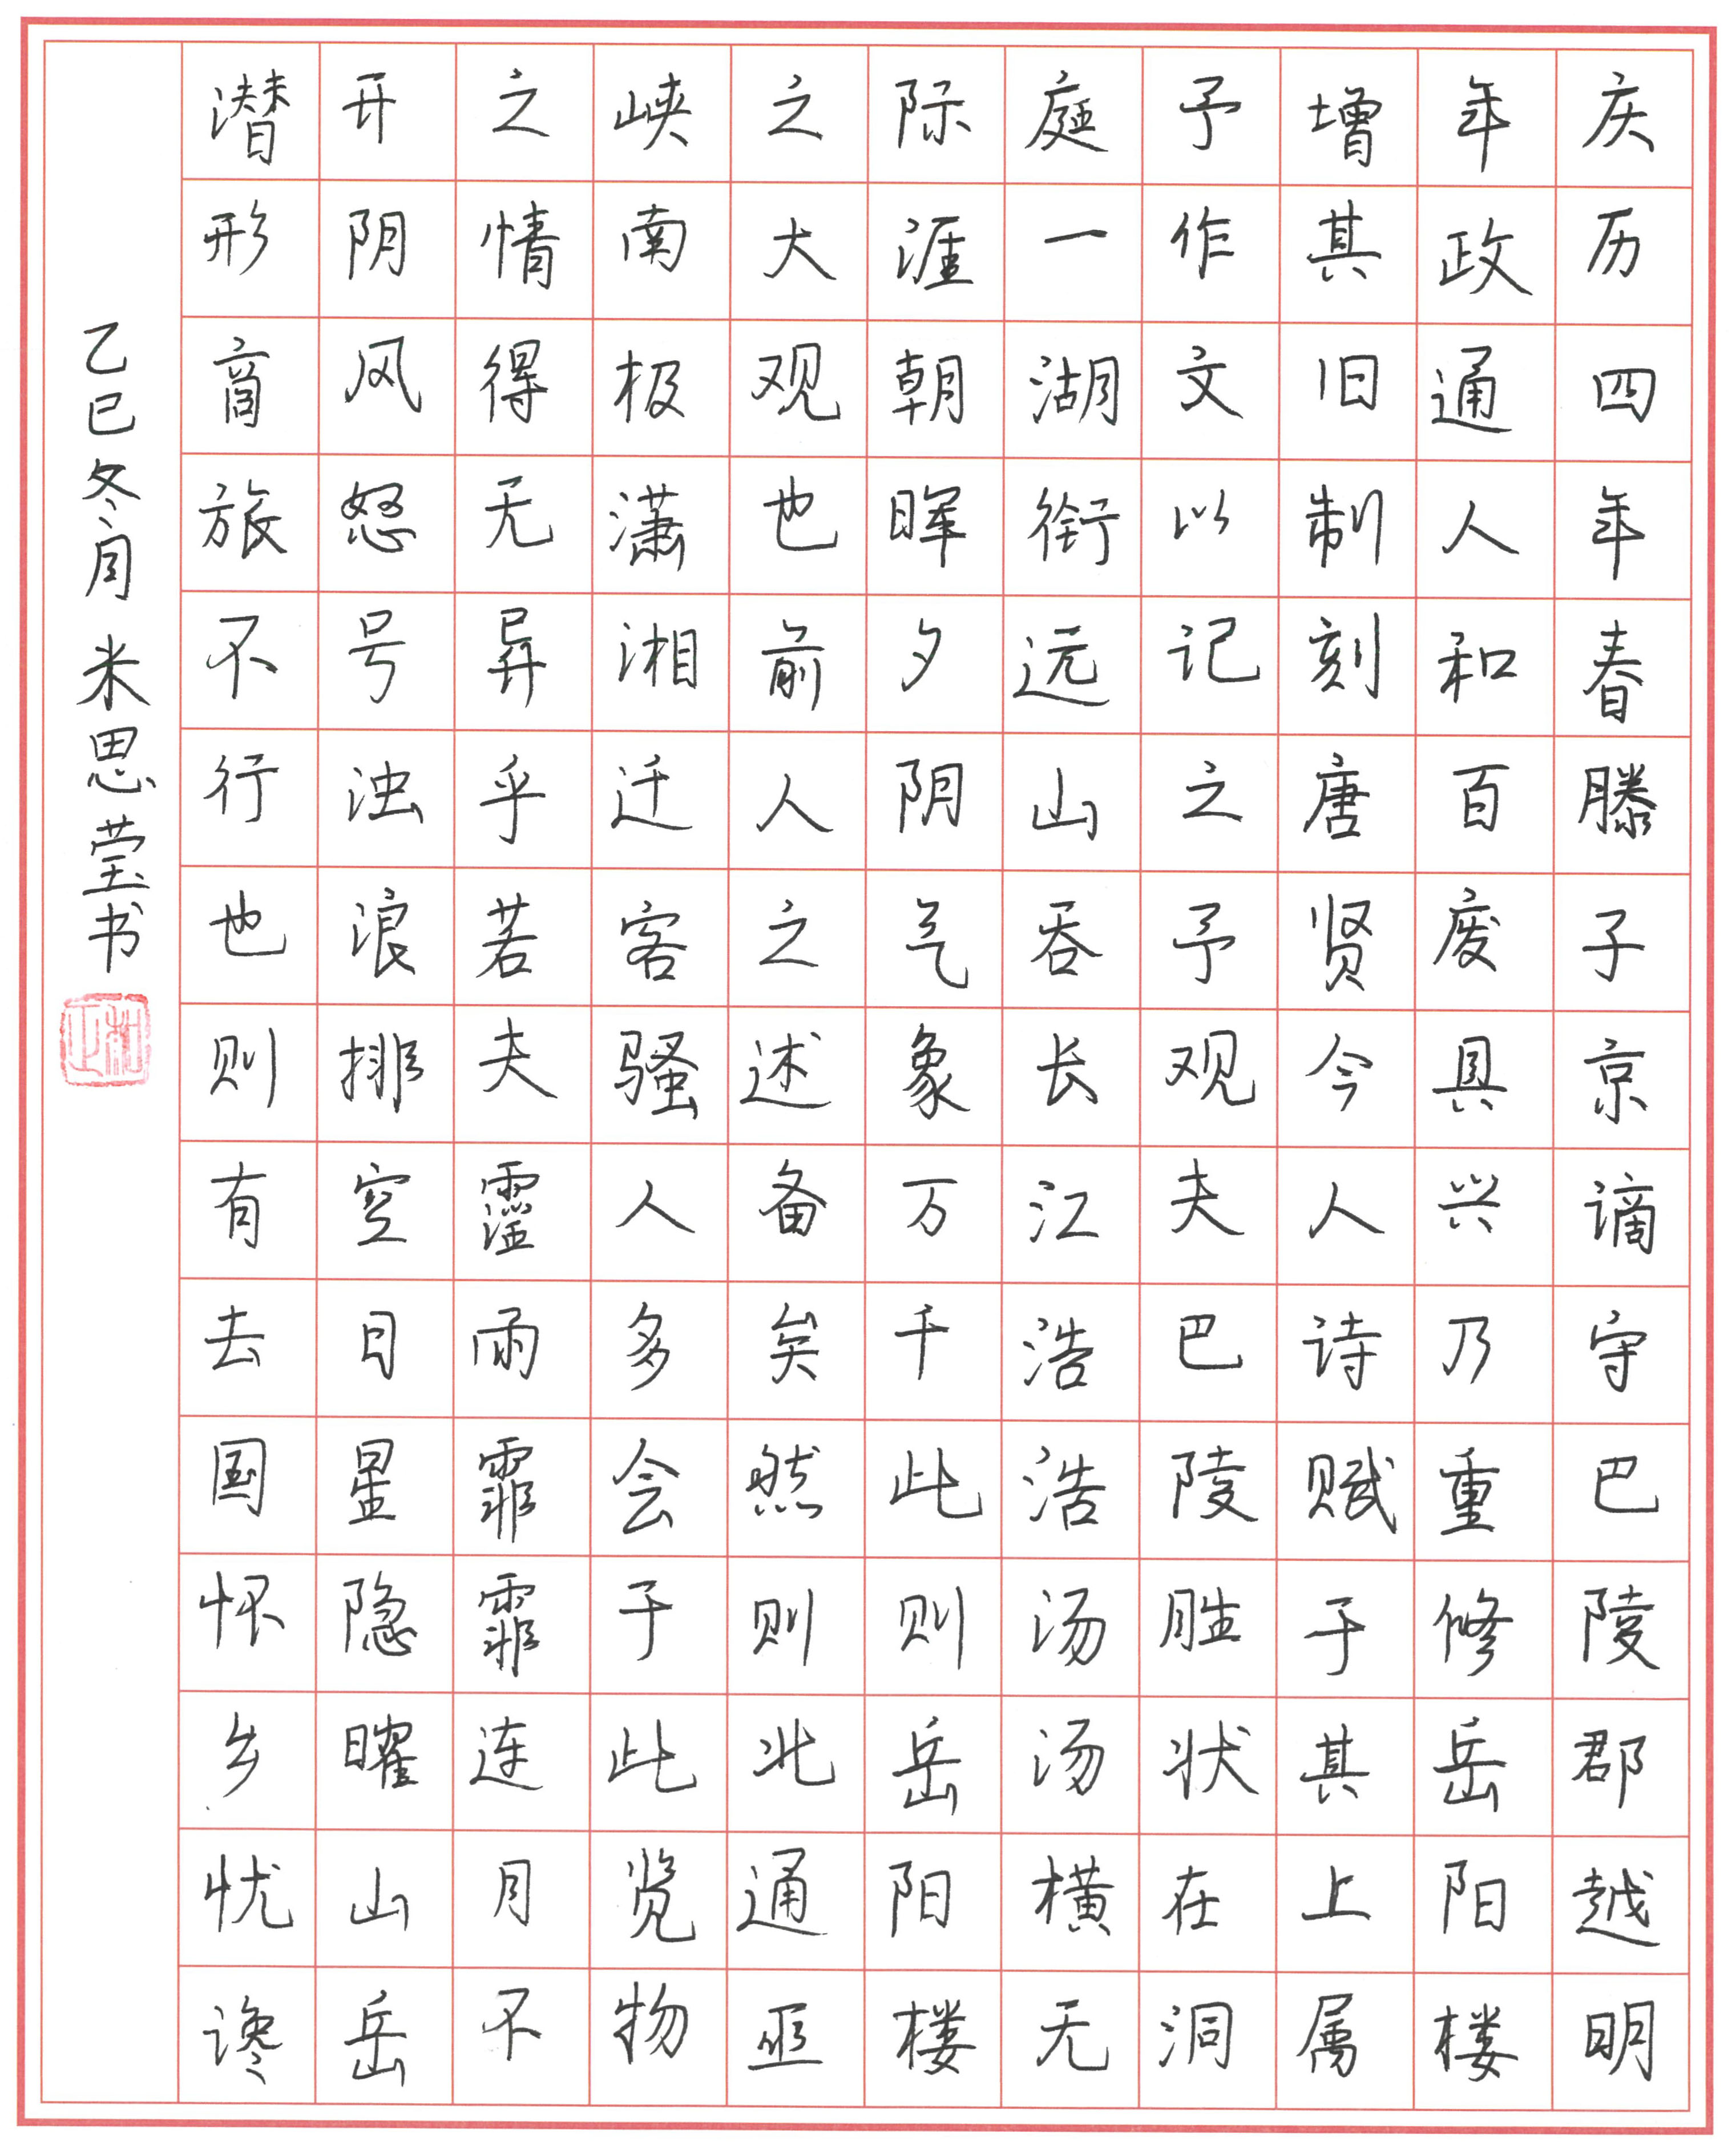 庆历四年春滕子京谪守巴陵郡越明
年政通人和百废具兴乃重修岳阳楼
增其旧制刻唐贤今人诗赋于其上属
予作文以记之予观夫巴陵胜状在洞
庭一湖衔远山吞长江浩浩汤汤横无
际涯朝晖夕阴气象万千此则岳阳楼
之大观也前人之述备矣然则北通巫
峡南极潇湘迁客骚人多会于此览物
之情得无异乎若夫霪雨霏霏连月不
开阴风怒号浊浪排空日星隐曜山岳
潜形商旅不行也则有去国怀乡忧谗
乙巳冬月米思莹书